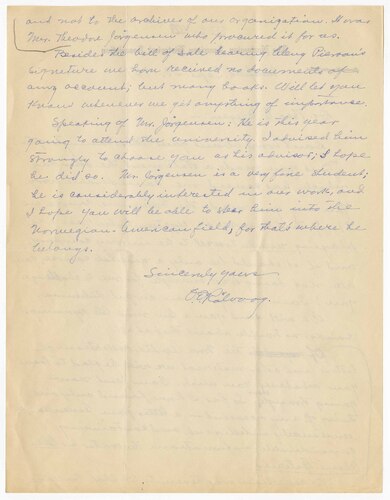 and not to the archives of our organization. It was
Mr. Theodore Jorgensen who procured it for us.
Besides the bill of sale bearing Cleng Pierson's
signature we have received no documents of
any account; but many books. Will let you
know whenever we get anything of importance.
Speaking of Mr. Jörgensen: He is this year
going to attend the university. I advised him
strongly to choose you as his advisor; I hope
he did so. Mr. Jörgensen is a very fine student;
he is considerably interested in our work, and
I hope you will be able to steer him into the
Norwegian-American field, for that's where he
belongs.
Sincerely yours
O. E. Rölvaag.